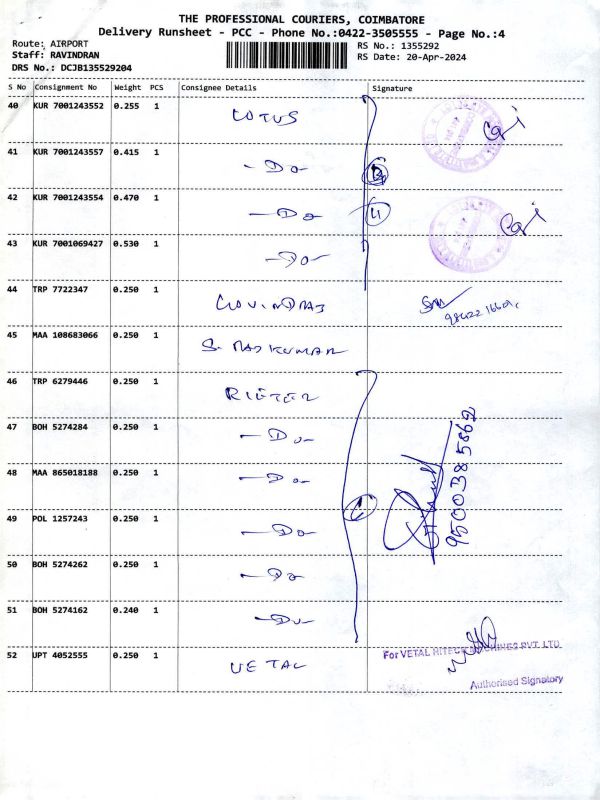 THE PROFESSIONAL COURIERS, COIMBATORE
Delivery Runsheet - PCC - Phone No.:0422-3505555 - Page No.:4
Route: AIRPORT
Staff: RAVINDRAN
DRS No.: DCJB135529204
RS No.: 1355292
RS Date: 20-Apr-2024
S No Consignment No Weight PCS Consignee Details Signature
40 KUR 7001243552 0.255 1 LOTUS
41 KUR 7001243557 0.415 1 - Do
42 KUR 7001243554 0.470 1 - Do
43 KUR 7001069427 0.530 1 - Do
44 TRP 7722347 0.250 1 GOVINDRAJ
45 MAA 108683066 0.250 1 S. RAJKUMAR
46 TRP 6279446 0.250 1 RIETER
47 BOH 5274284 0.250 1 - Do
48 MAA 865018188 0.250 1 - Do
49 POL 1257243 0.250 1 - Do
9500385862
50 BOH 5274262 0.250 1 - Do
51 BOH 5274162 0.240 1 - Do
52 UPT 4052555 0.250 1 VETAL
For VETAL HITECH MACHINES PVT. LTD
Authorised Signatory